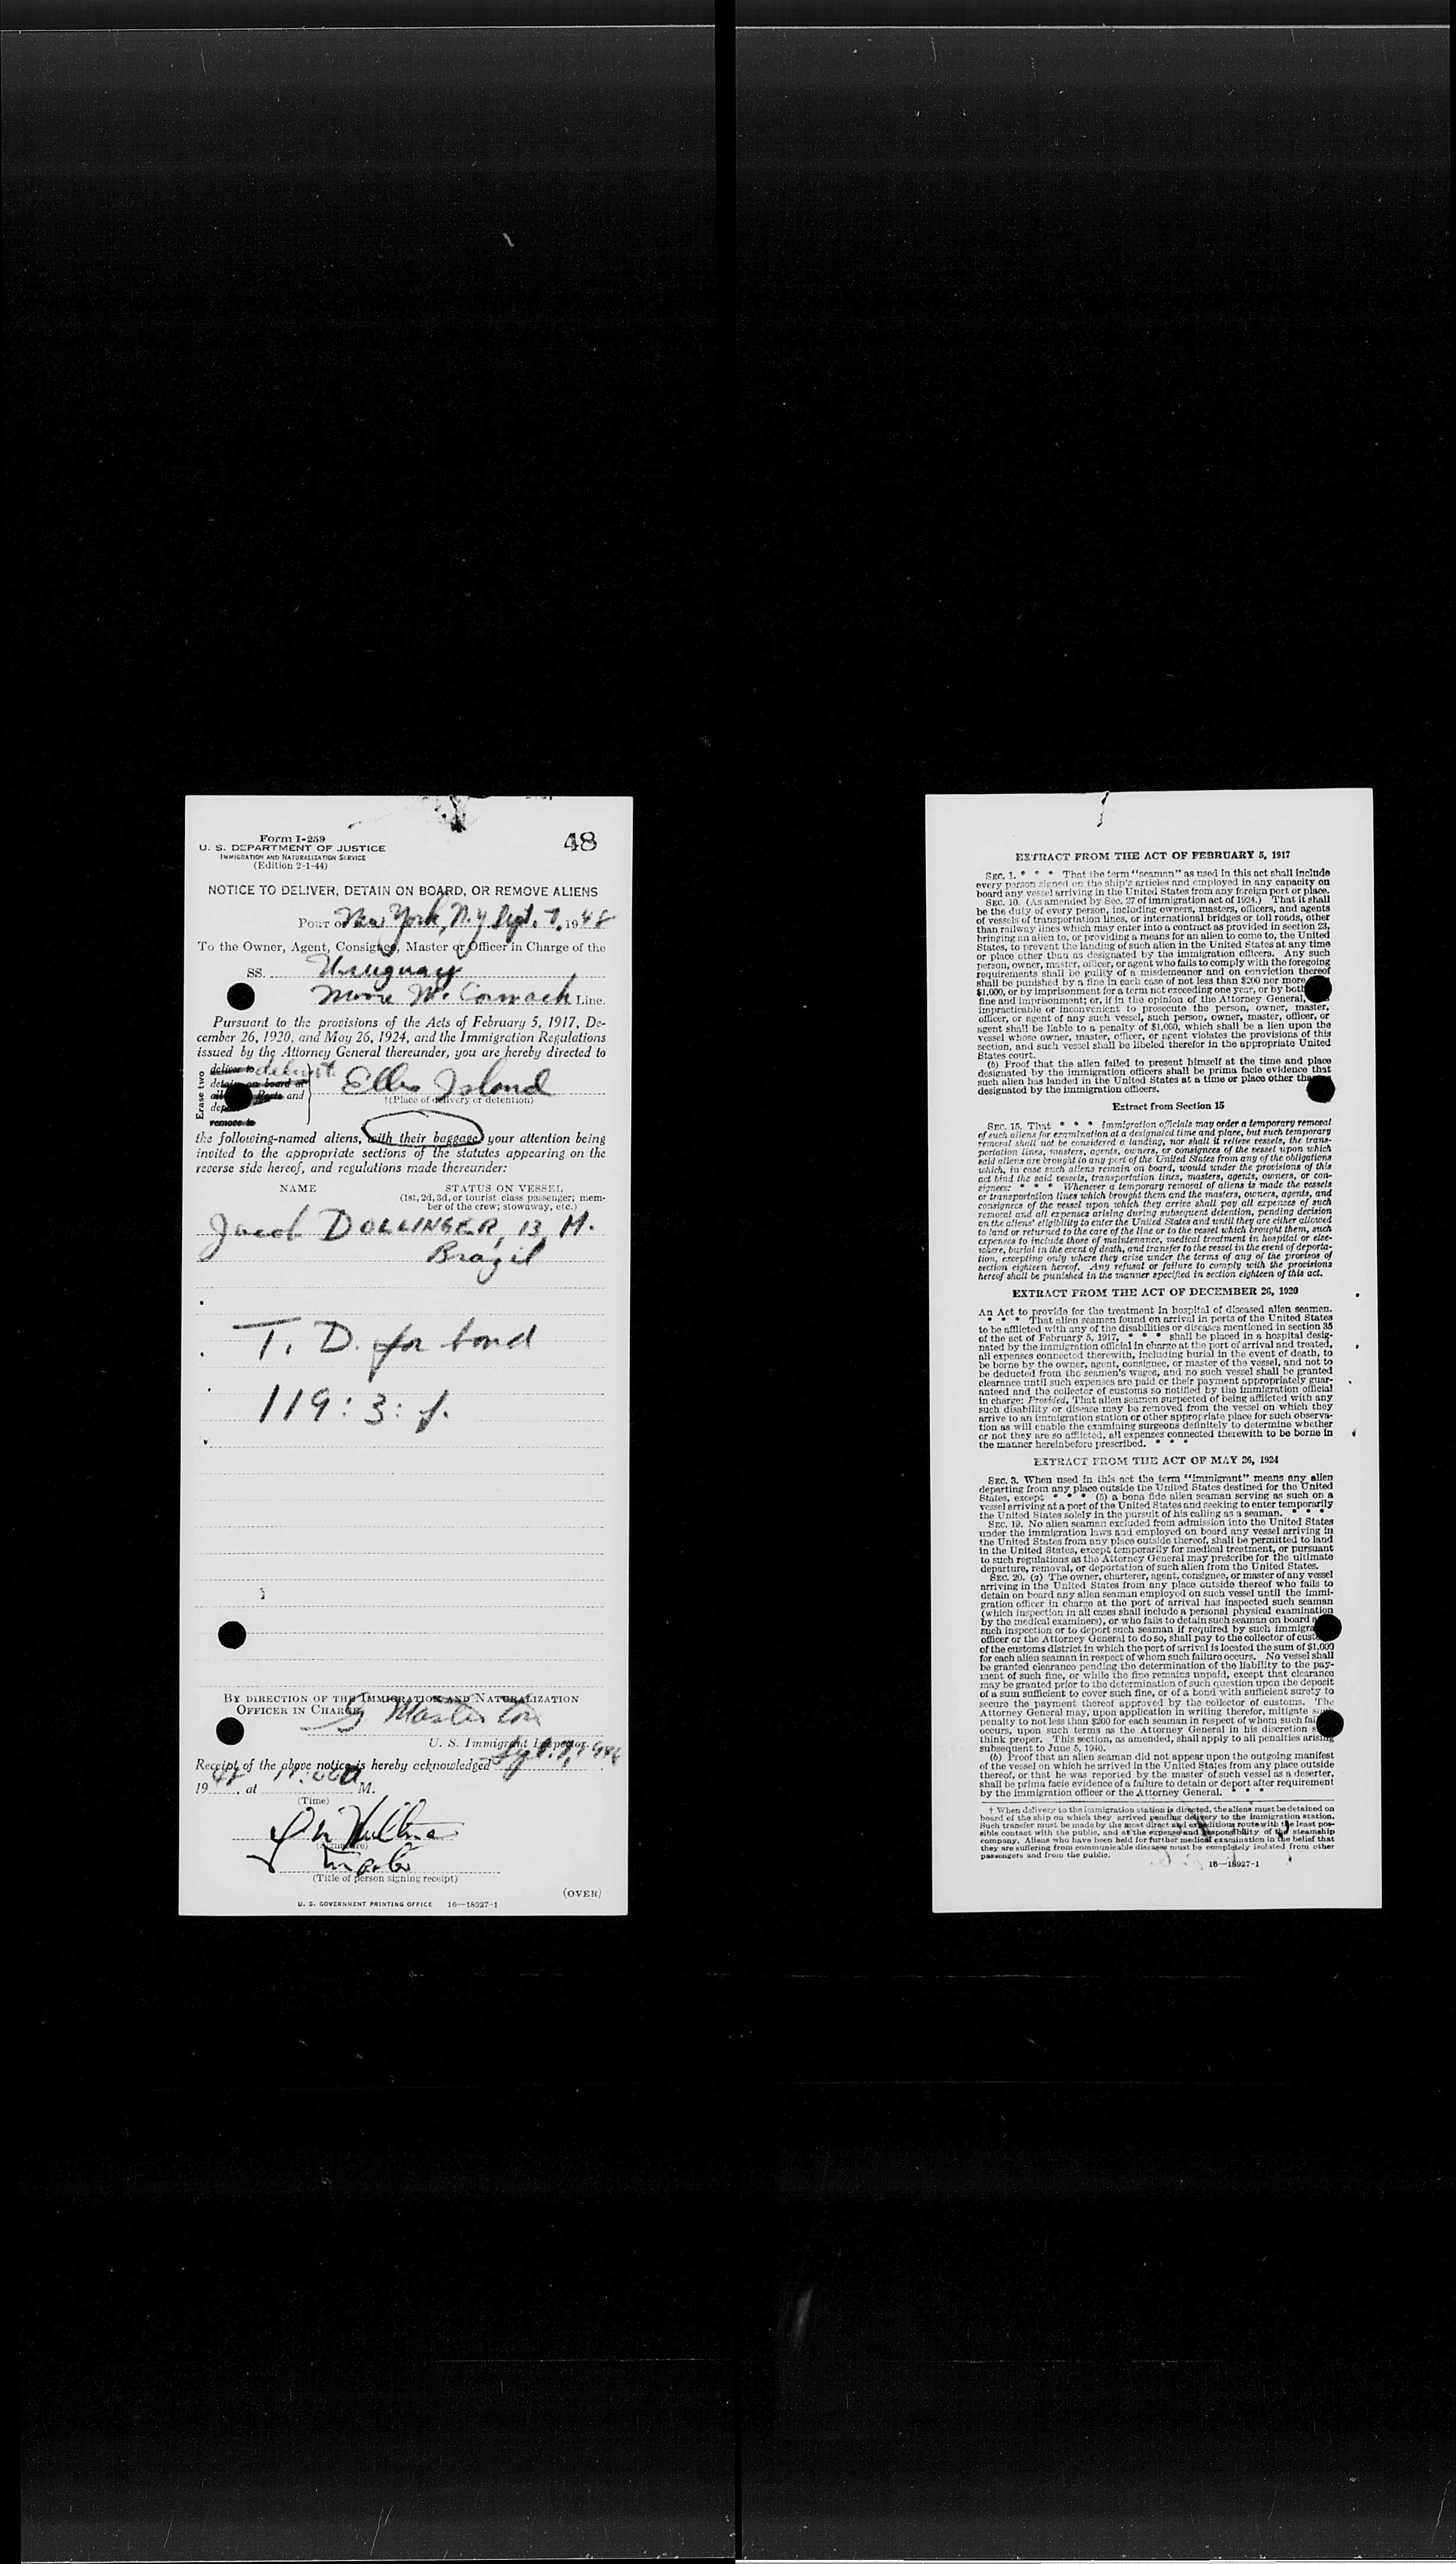 Form I-259
U. S. DEPARTMENT OF JUSTICE
IMMIGRATION AND NATURALIZATION SERVICE
(Edition 2-1-44)
48
NOTICE TO DELIVER, DETAIN ON BOARD, OR REMOVE ALIENS
PORT New York, N.Y. Sept. 7, 1948
To the Owner, Agent, Consignee, Master or Officer in Charge of the
SS. Uruguay
Moore Mc Cormack Line.
Pursuant to the provisions of the Acts of February 5, 1917, De-
cember 26, 1920, and May 26, 1924, and the Immigration Regulations
issued by the Attorney General thereunder, you are hereby directed to
Erase two
deliver to
detain on board at
Ports and
remove to
Ellis Island
†(Place of delivery or detention)
the following-named aliens, with their baggage, your attention being
invited to the appropriate sections of the statutes appearing on the
reverse side hereof, and regulations made thereunder:
NAME STATUS ON VESSEL
(1st, 2d, 3d, or tourist class passenger; mem-
ber of the crew; stowaway, etc.)
Jacob DOLLINGER, 13, M.
Brazil
T. D. for bond
119 : 3 :
BY DIRECTION OF THE IMMIGRATION AND NATURALIZATION
OFFICER IN CHARGE,
Masterton
U. S. Immigrant Inspector.
Receipt of the above notice is hereby acknowledged Sept. 7, 1948
1948, at M.
(Time)
(Title of person signing receipt)
(OVER)
U. S. GOVERNMENT PRINTING OFFICE 16—18927-1
EXTRACT FROM THE ACT OF FEBRUARY 5, 1917
SEC. 1. * * * That the term "seaman" as used in this act shall include
every person signed on the ship's articles and employed in any capacity on
board any vessel arriving in the United States from any foreign port or place.
SEC. 10. (As amended by Sec. 27 of immigration act of 1924.) That it shall
be the duty of every person, including owners, masters, officers, and agents
of vessels of transportation lines, or international bridges or toll roads, other
than railway lines which may enter into a contract as provided in section 23,
bringing an alien to, or providing a means for an alien to come to, the United
States, to prevent the landing of such alien in the United States at any time
or place other than as designated by the immigration officers. Any such
person, owner, master, officer, or agent who fails to comply with the foregoing
requirements shall be guilty of a misdemeanor and on conviction thereof
shall be punished by a fine in each case of not less than $200 nor more
$1,000, or by imprisonment for a term not exceeding one year, or by both
fine and imprisonment; or, if in the opinion of the Attorney General,
impracticable or inconvenient to prosecute the person, owner, master,
officer, or agent of any such vessel, such person, owner, master, officer, or
agent shall be liable to a penalty of $1,000, which shall be a lien upon the
vessel whose owner, master, officer, or agent violates the provisions of this
section, and such vessel shall be libeled therefor in the appropriate United
States court.
(b) Proof that the alien failed to present himself at the time and place
designated by the immigration officers shall be prima facie evidence that
such alien has landed in the United States at a time or place other
designated by the immigration officers.
Extract from Section 15
SEC. 15. That * * * immigration officials may order a temporary removal
of such aliens for examination at a designated time and place, but such temporary
removal shall not be considered a landing, nor shall it relieve vessels, the trans-
portation lines, masters, agents, owners, or consignees of the vessel upon which
said aliens are brought to any port of the United States from any of the obligations
which, in case such aliens remain on board, would under the provisions of this
act bind the said vessels, transportation lines, masters, agents, owners, or con-
signees: * * * Whenever a temporary removal of aliens is made the vessels
or transportation lines which brought them and the masters, owners, agents, and
consignees of the vessel upon which they arrive shall pay all expenses of such
removal and all expenses arising during subsequent detention, pending decision
on the aliens' eligibility to enter the United States and until they are either allowed
to land or returned to the care of the line or to the vessel which brought them, such
expenses to include those of maintenance, medical treatment in hospital or else-
where, burial in the event of death, and transfer to the vessel in the event of deporta-
tion, excepting only where they arise under the terms of any of the provisos of
section eighteen hereof. Any refusal or failure to comply with the provisions
hereof shall be punished in the manner specified in section eighteen of this act.
EXTRACT FROM THE ACT OF DECEMBER 26, 1920
An Act to provide for the treatment in hospital of diseased alien seamen.
* * * That alien seamen found on arrival in ports of the United States
to be afflicted with any of the disabilities or diseases mentioned in section 35
of the act of February 5, 1917, * * * shall be placed in a hospital desig-
nated by the immigration official in charge at the port of arrival and treated,
all expenses connected therewith, including burial in the event of death, to
be borne by the owner, agent, consignee, or master of the vessel, and not to
be deducted from the seamen's wages, and no such vessel shall be granted
clearance until such expenses are paid or their payment appropriately guar-
anteed and the collector of customs so notified by the immigration official
in charge: Provided, That alien seamen suspected of being afflicted with any
such disability or disease may be removed from the vessel on which they
arrive to an immigration station or other appropriate place for such observa-
tion as will enable the examining surgeons definitely to determine whether
or not they are so afflicted, all expenses connected therewith to be borne in
the manner hereinbefore prescribed. * * *
EXTRACT FROM THE ACT OF MAY 26, 1924
SEC. 3. When used in this act the term "immigrant" means any alien
departing from any place outside the United States destined for the United
States, except * * * (5) a bona fide alien seaman serving as such on a
vessel arriving at a port of the United States and seeking to enter temporarily
the United States solely in the pursuit of his calling as a seaman. * * *
SEC. 19. No alien seaman excluded from admission into the United States
under the immigration laws and employed on board any vessel arriving in
the United States from any place outside thereof, shall be permitted to land
in the United States, except temporarily for medical treatment, or pursuant
to such regulations as the Attorney General may prescribe for the ultimate
departure, removal, or deportation of such alien from the United States.
SEC. 20. (a) The owner, charterer, agent, consignee, or master of any vessel
arriving in the United States from any place outside thereof who fails to
detain on board any alien seaman employed on such vessel until the immi-
gration officer in charge at the port of arrival has inspected such seaman
(which inspection in all cases shall include a personal physical examination
by the medical examiners), or who fails to detain such seaman on board
such inspection or to deport such seaman if required by such
officer or the Attorney General to do so, shall pay to the collector of
of the customs district in which the port of arrival is located the sum of $1,000
for each alien seaman in respect of whom such failure occurs. No vessel shall
be granted clearance pending the determination of the liability to the pay-
ment of such fine, or while the fine remains unpaid, except that clearance
may be granted prior to the determination of such question upon the deposit
of a sum sufficient to cover such fine, or of a bond with sufficient surety to
secure the payment thereof approved by the collector of customs. The
Attorney General may, upon application in writing therefor, mitigate such
penalty to not less than $200 for each seaman in respect of whom such
occurs, upon such terms as the Attorney General in his discretion
think proper. This section, as amended, shall apply to all penalties arising
subsequent to June 5, 1940.
(b) Proof that an alien seaman did not appear upon the outgoing manifest
of the vessel on which he arrived in the United States from any place outside
thereof, or that he was reported by the master of such vessel as a deserter,
shall be prima facie evidence of a failure to detain or deport after requirement
by the immigration officer or the Attorney General. * * *
† When delivery to the immigration station is directed, the aliens must be detained on
board of the ship on which they arrived pending delivery to the immigration station.
Such transfer must be made by the most direct and expeditious route with the least pos-
sible contact with the public, and at the expense and responsibility of the steamship
company. Aliens who have been held for further medical examination in the belief that
they are suffering from communicable diseases must be completely isolated from other
passengers and from the public.
16—18927-1